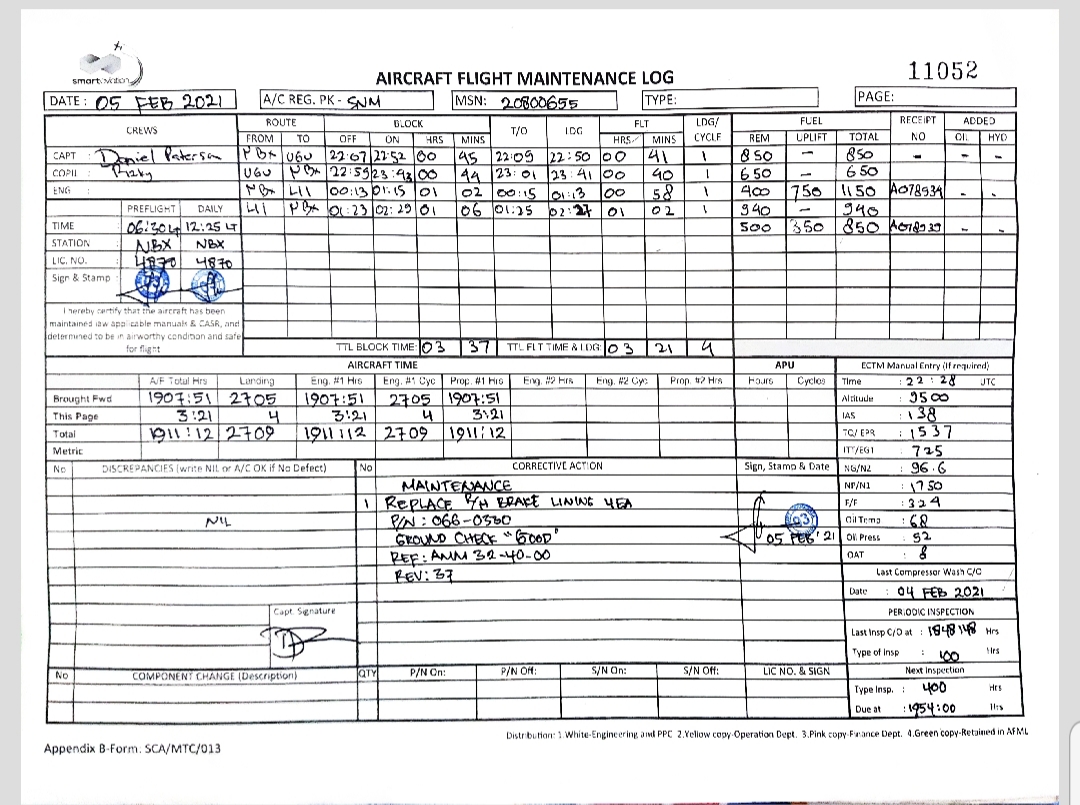 smart aviation
11052
AIRCRAFT FLIGHT MAINTENANCE LOG
DATE: 05 FEB 2021 A/C REG. PK - SNM MSN: 20800655 TYPE: PAGE:
CREWS ROUTE BLOCK T/O LDG FLT LDG/CYCLE FUEL RECEIPT NO ADDED
FROM TO OFF ON HRS MINS HRS MINS REM UPLIFT TOTAL OIL HYD
CAPT : Daniel Paterson NBX UGU 22:07 22:52 00 45 22:09 22:50 00 41 1 850 - 850 - - -
COPIL : Rizky UGU NBX 22:59 23:43 00 44 23:01 23:41 00 40 1 650 - 650
ENG : NBX LII 00:13 01:15 01 02 00:15 01:13 00 58 1 400 750 1150 A078934 - -
PREFLIGHT DAILY LII NBX 01:23 02:29 01 06 01:25 02:27 01 02 1 940 - 940
TIME : 06:30 LT 12:25 LT 500 350 850 - -
STATION : NBX NBX
LIC. NO. : 4870 4870
Sign & Stamp :
I hereby certify that the aircraft has been
maintained iaw applicable manuals & CASR, and
determined to be in airworthy condition and safe
for flight
TTL BLOCK TIME: 03 37 TTL FLT TIME & LDG: 03 21 4
AIRCRAFT TIME APU ECTM Manual Entry (If required)
A/F Total Hrs Landing Eng. #1 Hrs Eng. #1 Cyc Prop. #1 Hrs Eng. #2 Hrs Eng. #2 Cyc Prop. #2 Hrs Hours Cycles Time : 22:28 UTC
Brought Fwd 1907:51 2705 1907:51 2705 1907:51 Altitude : 9500
This Page 3:21 4 3:21 4 3:21 IAS : 138
Total 1911:12 2709 1911:12 2709 1911:12 TQ/EPR : 1537
Metric ITT/EGT : 725
No DISCREPANCIES (write NIL or A/C OK if No Defect) No CORRECTIVE ACTION Sign, Stamp & Date NG/N2 : 96.6
MAINTENANCE NP/N1 : 1750
1 REPLACE R/H BRAKE LINING 4EA F/F : 324
NIL P/N : 066-0330 Oil Temp : 68
GROUND CHECK "GOOD" 05 FEB '21 Oil Press : 92
REF: AMM 32-40-00 OAT : 8
REV: 37 Last Compressor Wash C/O
Date : 04 FEB 2021
Capt. Signature PERIODIC INSPECTION
Last Insp C/O at : 1848:48 Hrs
Type of Insp : 100 Hrs
No COMPONENT CHANGE (Description) QTY P/N On: P/N Off: S/N On: S/N Off: LIC NO. & SIGN Next Inspection
Type Insp. : 400 Hrs
Due at : 1954:00 Hrs
Distribution: 1.White-Engineering and PPC 2.Yellow copy-Operation Dept. 3.Pink copy-Finance Dept. 4.Green copy-Retained in AFML
Appendix B-Form. SCA/MTC/013